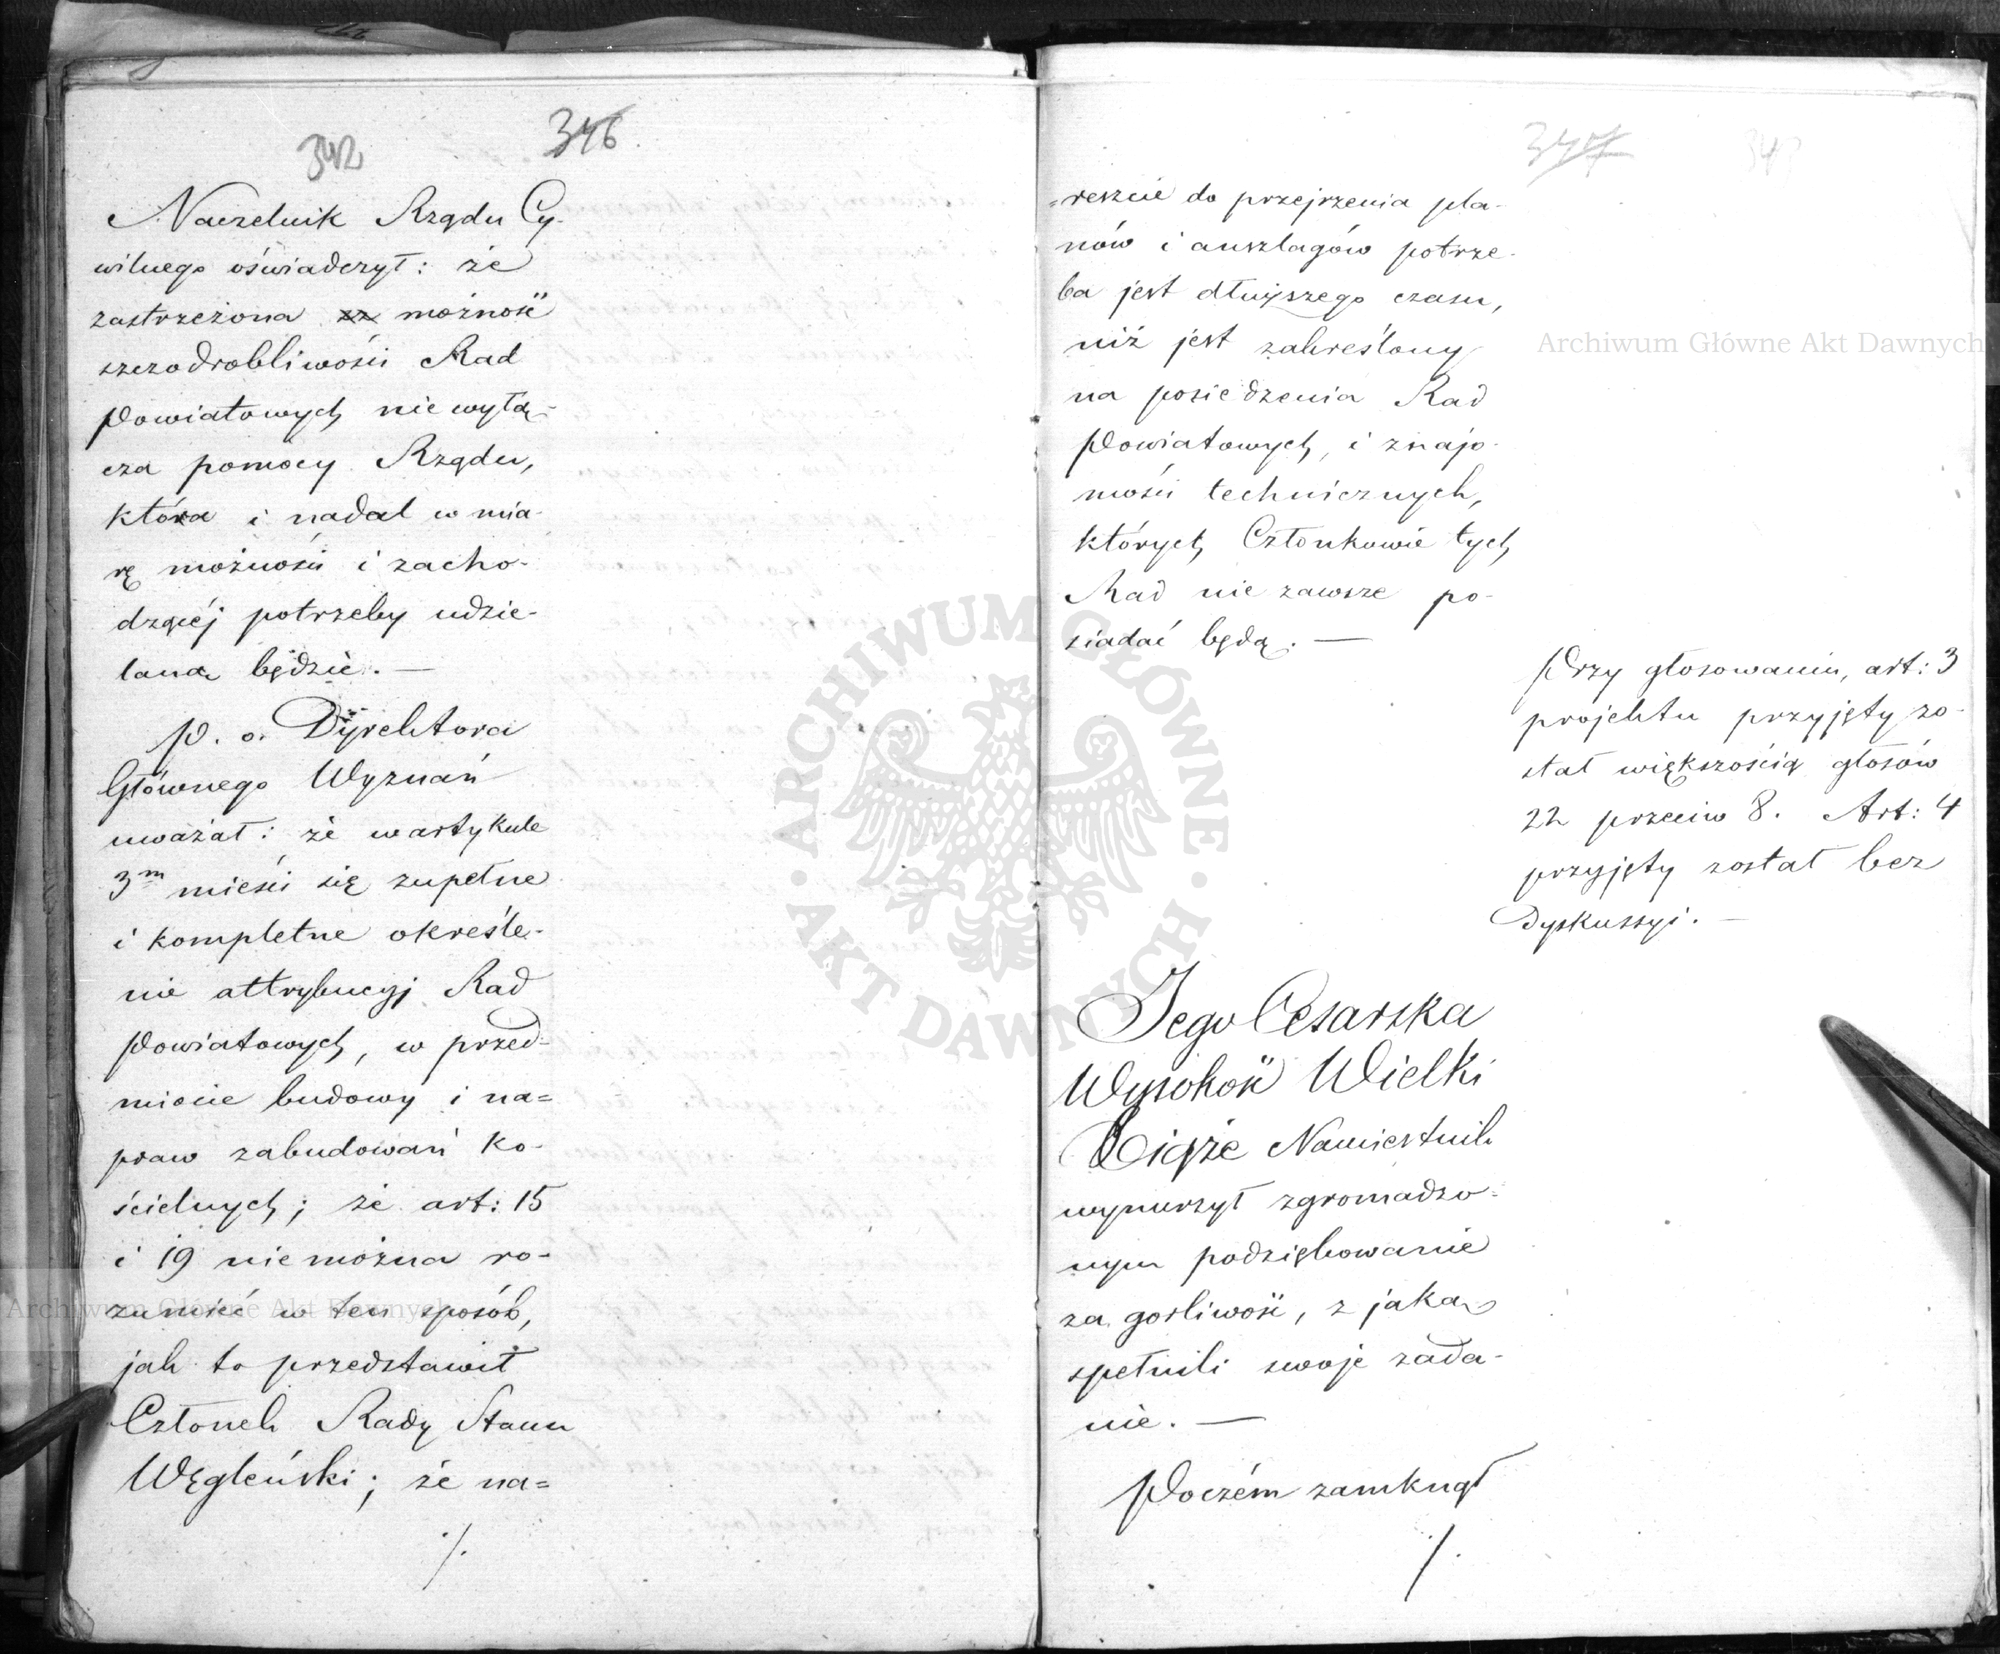 342 346
Naczelnik Rządu Cy-
wilnego oświadczył: że
zastrzeżona możność
szczodrobliwości Rad
Powiatowych nie wyłą-
cza pomocy Rządu,
która i nadal w mia-
rę możności i zacho-
dzącéj potrzeby udzie-
laną będzie. —
P. o. Dyrektora
Głównego Wyznań
uważał: że w artykule
3m mieści się zupełne
i kompletne określe-
nie attrybucyj Rad
Powiatowych, w przed-
miocie budowy i na=
praw zabudowań ko-
ścielnych; że art: 15
i 19 nie można ro-
zumieć w ten sposób,
jak to przedstawił
Członek Rady Stanu
Węgleński; że na=
/.
347
=reszcie do przejrzenia pla-
nów i anszlagów potrze-
ba jest dłuższego czasu,
niż jest zakreślony
na posiedzenia Rad
Powiatowych, i znajo-
mości technicznych,
których Członkowie tych
Rad nie zawsze po-
siadać będą. —
Przy głosowaniu, art: 3
projektu przyjęty zo-
stał większością głosów
22 przeciw 8. Art: 4
przyjęty został bez
Dyskussyi. —
Jego Cesarska
Wysokość Wielki
Xiąże Namiestnik
wynurzył zgromadzo-
nym podziękowanie
za gorliwość, z jaką
spełnili swoje zada-
nie. —
Poczém zamknął
/.
Archiwum Główne Akt Dawnych
Archiwum Główne Akt Dawnych
ARCHIWUM GŁÓWNE
AKT DAWNYCH